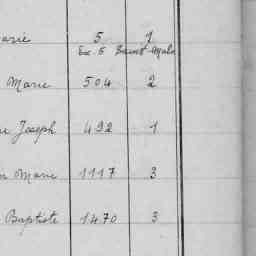 arie 5 1
Ex. 5 Saint Malo
Marie 504 2
Joseph 492 1
Marie 1117 3
Baptiste 1470 3